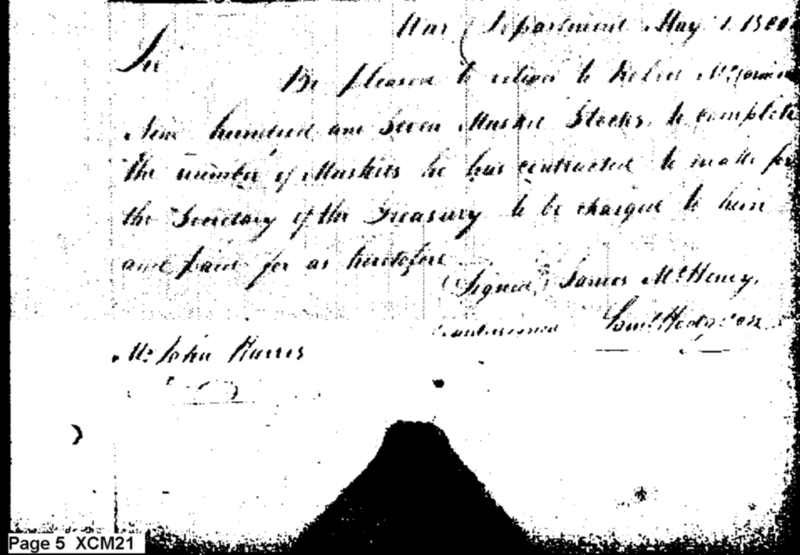 War Department May 1. 1800
Sir
Be pleased to deliver to Robert McCormick
Nine hundred and Seven Musket Stocks, to complete
the number of Muskets he has contracted to make for
the Secretary of the Treasury to be charged to him
and paid for as heretofore
(Signed) James McHenry,
Countersigned Saml. Hodgdon
Mr John Harris
Page 5 XCM21